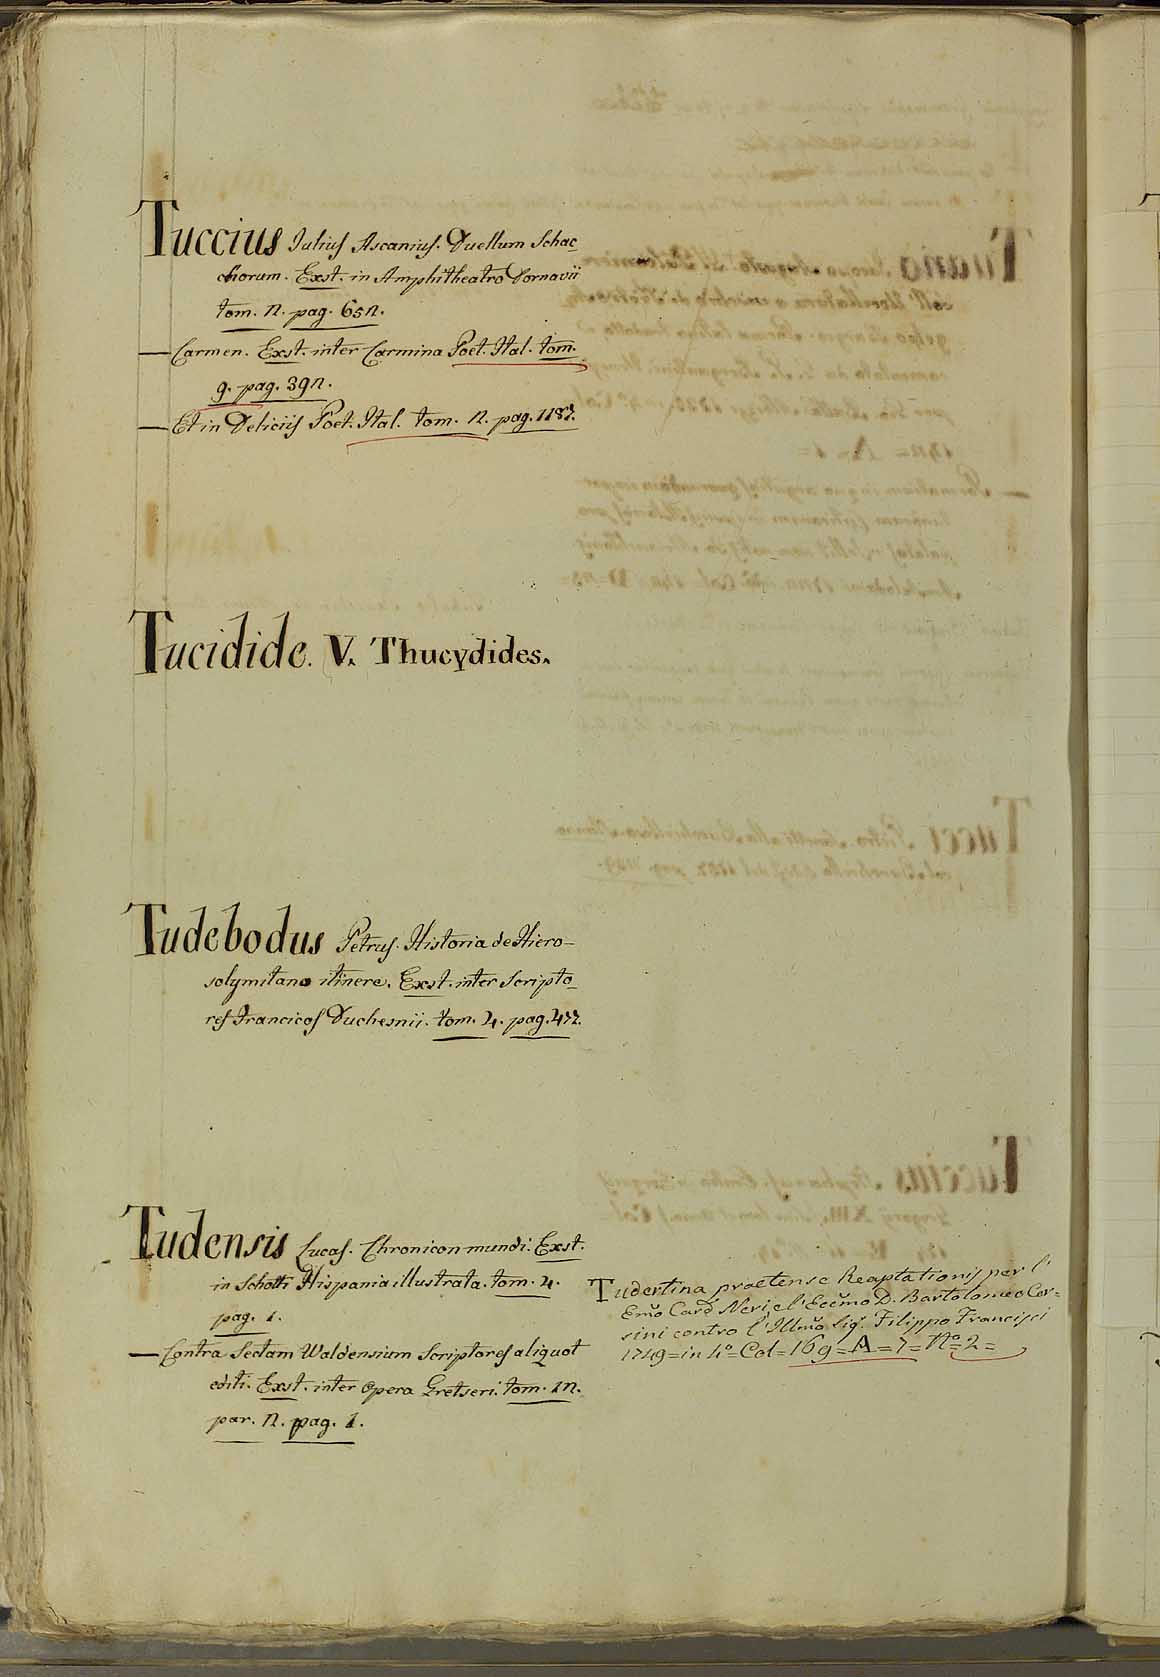 Tuccius Julius Ascanius. Duellum Schac
chiorum. Exst. in Amphitheatro Dornavii
tom. 2. pag. 652.
— Carmen. Exst. inter Carmina Poet. Ital. tom.
9. pag. 392.
— Et in Deliciis Poet. Ital. tom. 2. pag. 1187.
Tucidide. V. Thucydides.
Tudebodus Petrus. Historia de Hiero-
solymitano itinere. Exst. inter Scripto
res Francicos Duchesnii. tom. 4. pag. 477.
Tudensis Lucas. Chronicon mundi. Exst.
in Schotti Hispania illustrata. tom. 4.
pag. 1.
— Contra Sectam Waldensium Scriptores aliquot
editi. Exst. inter Opera Gretseri. tom. 12.
par. 2. pag. 1.
Tudertina praetensae Reaptationis per l'
Emo Card. Neri, e l'Eccmo D. Bartolomeo Cor=
sini contro l'Illmo Sigr. Filippo Francisci
1749 = in 4º = Col = 169 = A = 7 = Nº = 2 =